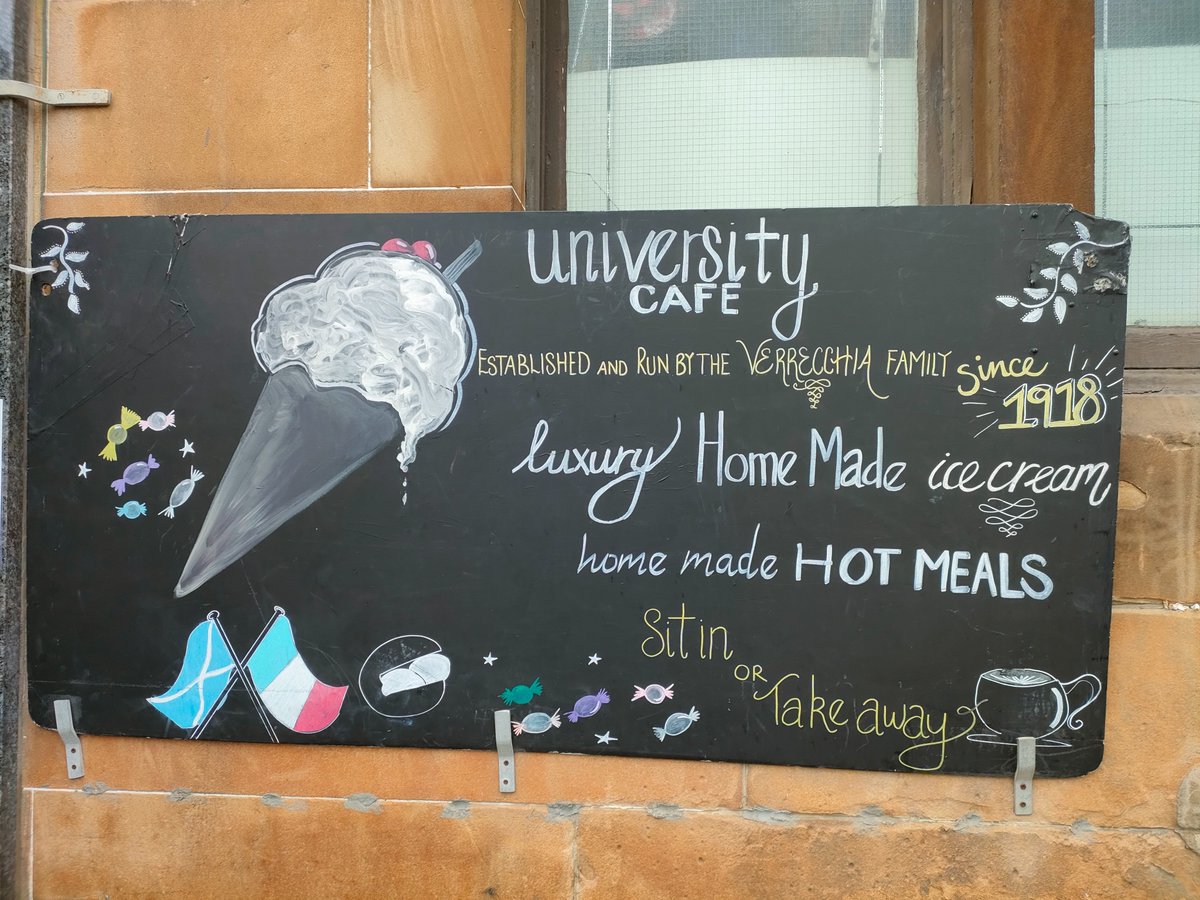 University
CAFE
ESTABLISHED AND RUN BY THE VERRECCHIA FAMILY since 1918
luxury Home Made ice cream
home made HOT MEALS
Sit in
OR
Take away